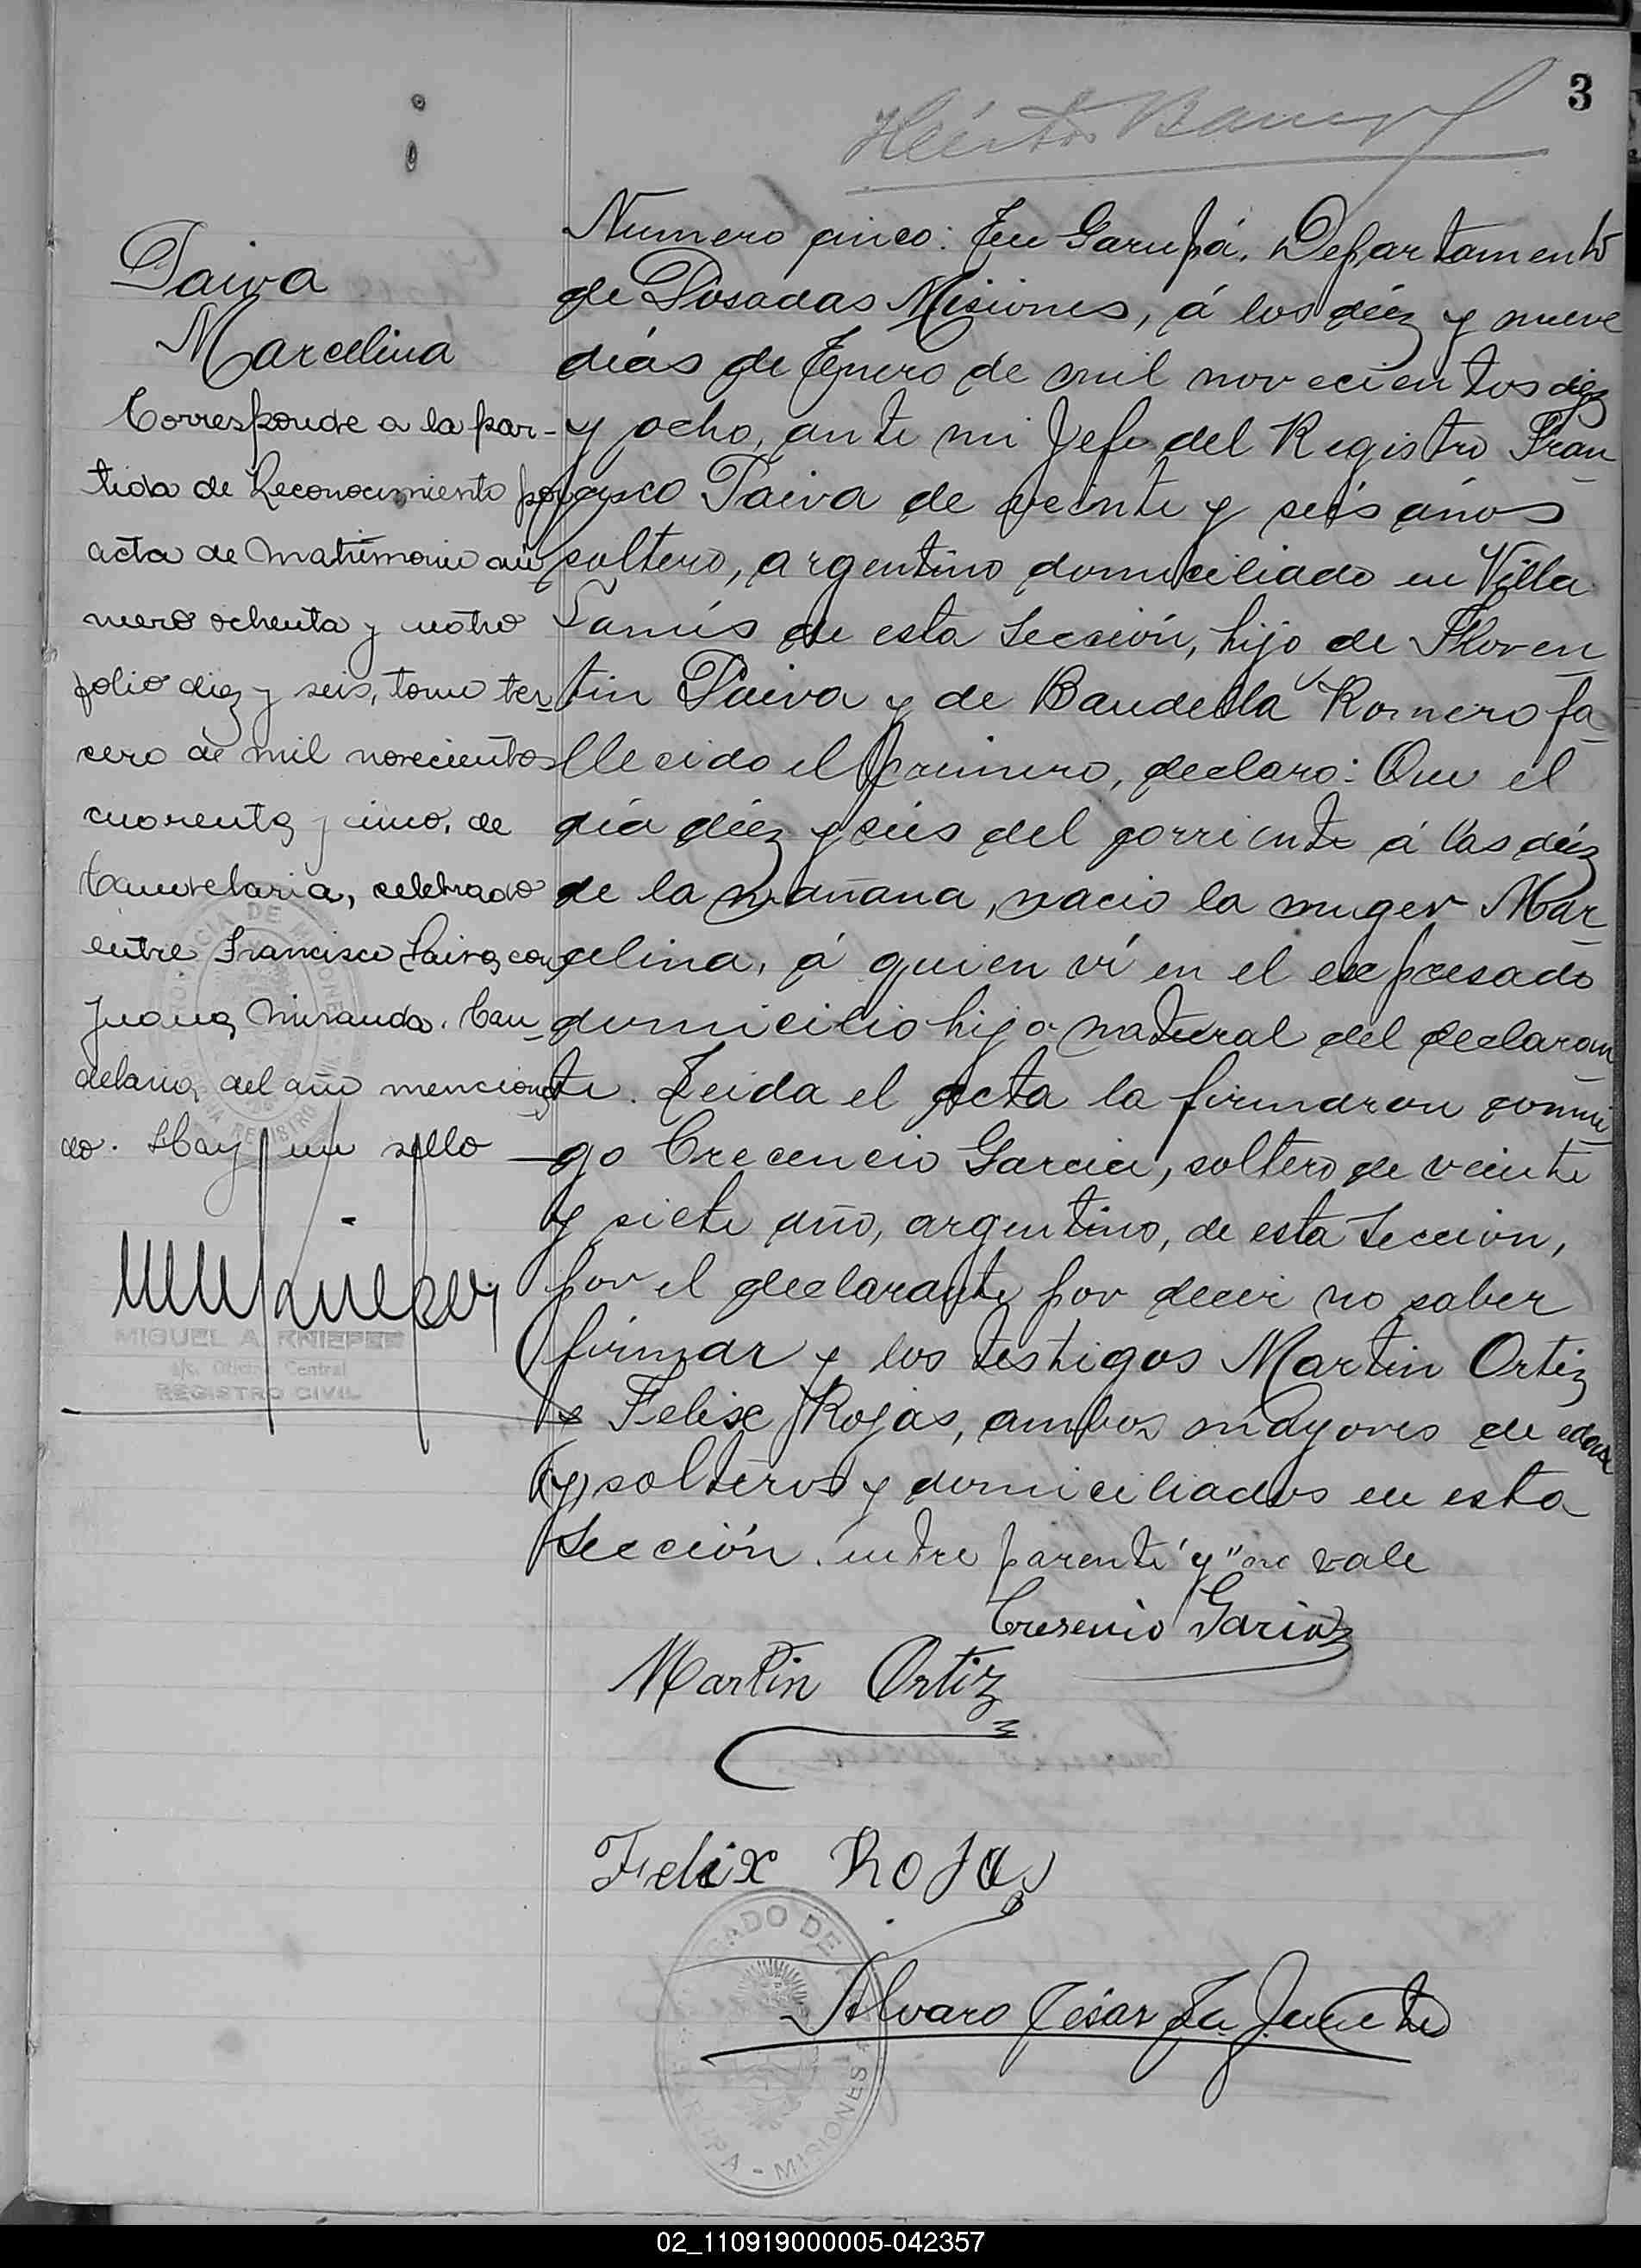 3
Héctor
Paiva
Marcelina
Corresponde a la par-
tida de Reconocimiento por
acta de matrimonio nú
mero ochenta y cuatro
folio diez y seis, tomo ter-
cero de mil novecientos
cuarenta y cinco, de
Candelaria, celebrado
entre Francisco Paiva con
Juana Miranda. Can-
delaria, del año menciona
do. Hay un sello
MIGUEL A. KNIEPEE
a/c. Oficina Central
REGISTRO CIVIL
Numero cinco: En Garupá, Departamento
de Posadas Misiones, á los diéz y nueve
días de Enero de mil novecientos diez
y ocho, ante mi Jefe del Registro Fran-
cisco Paiva de veinte y seis años
soltero, argentino domiciliado en Villa
Lanús de esta Sección, hijo de Floren-
tin Paiva y de Romero fa-
llecido el primero, declaro: Que el
día diéz y seis del corriente á las diéz
de la mañana, nacio la muger Mar-
celina, á quien ví en el expresado
domicilio hija natural del declaran-
te. Leida el acta la firmaron conmi-
go Crecencio Garcia, soltero de veinte
y siete año, argentino, de esta Seccion,
por el declarante por decir no saber
firmar y los testigos Martin Ortiz
y Felix Rojas, ambos mayores de edad
(y) solteros y domiciliados en esta
Sección. entre parente "y" no vale
Cresenio Garia
Martin Ortiz
Felix Rojas
JUZGADO DE PAZ
GARUPA - MISIONES
Alvaro César La Fuente
02_110919000005-042357